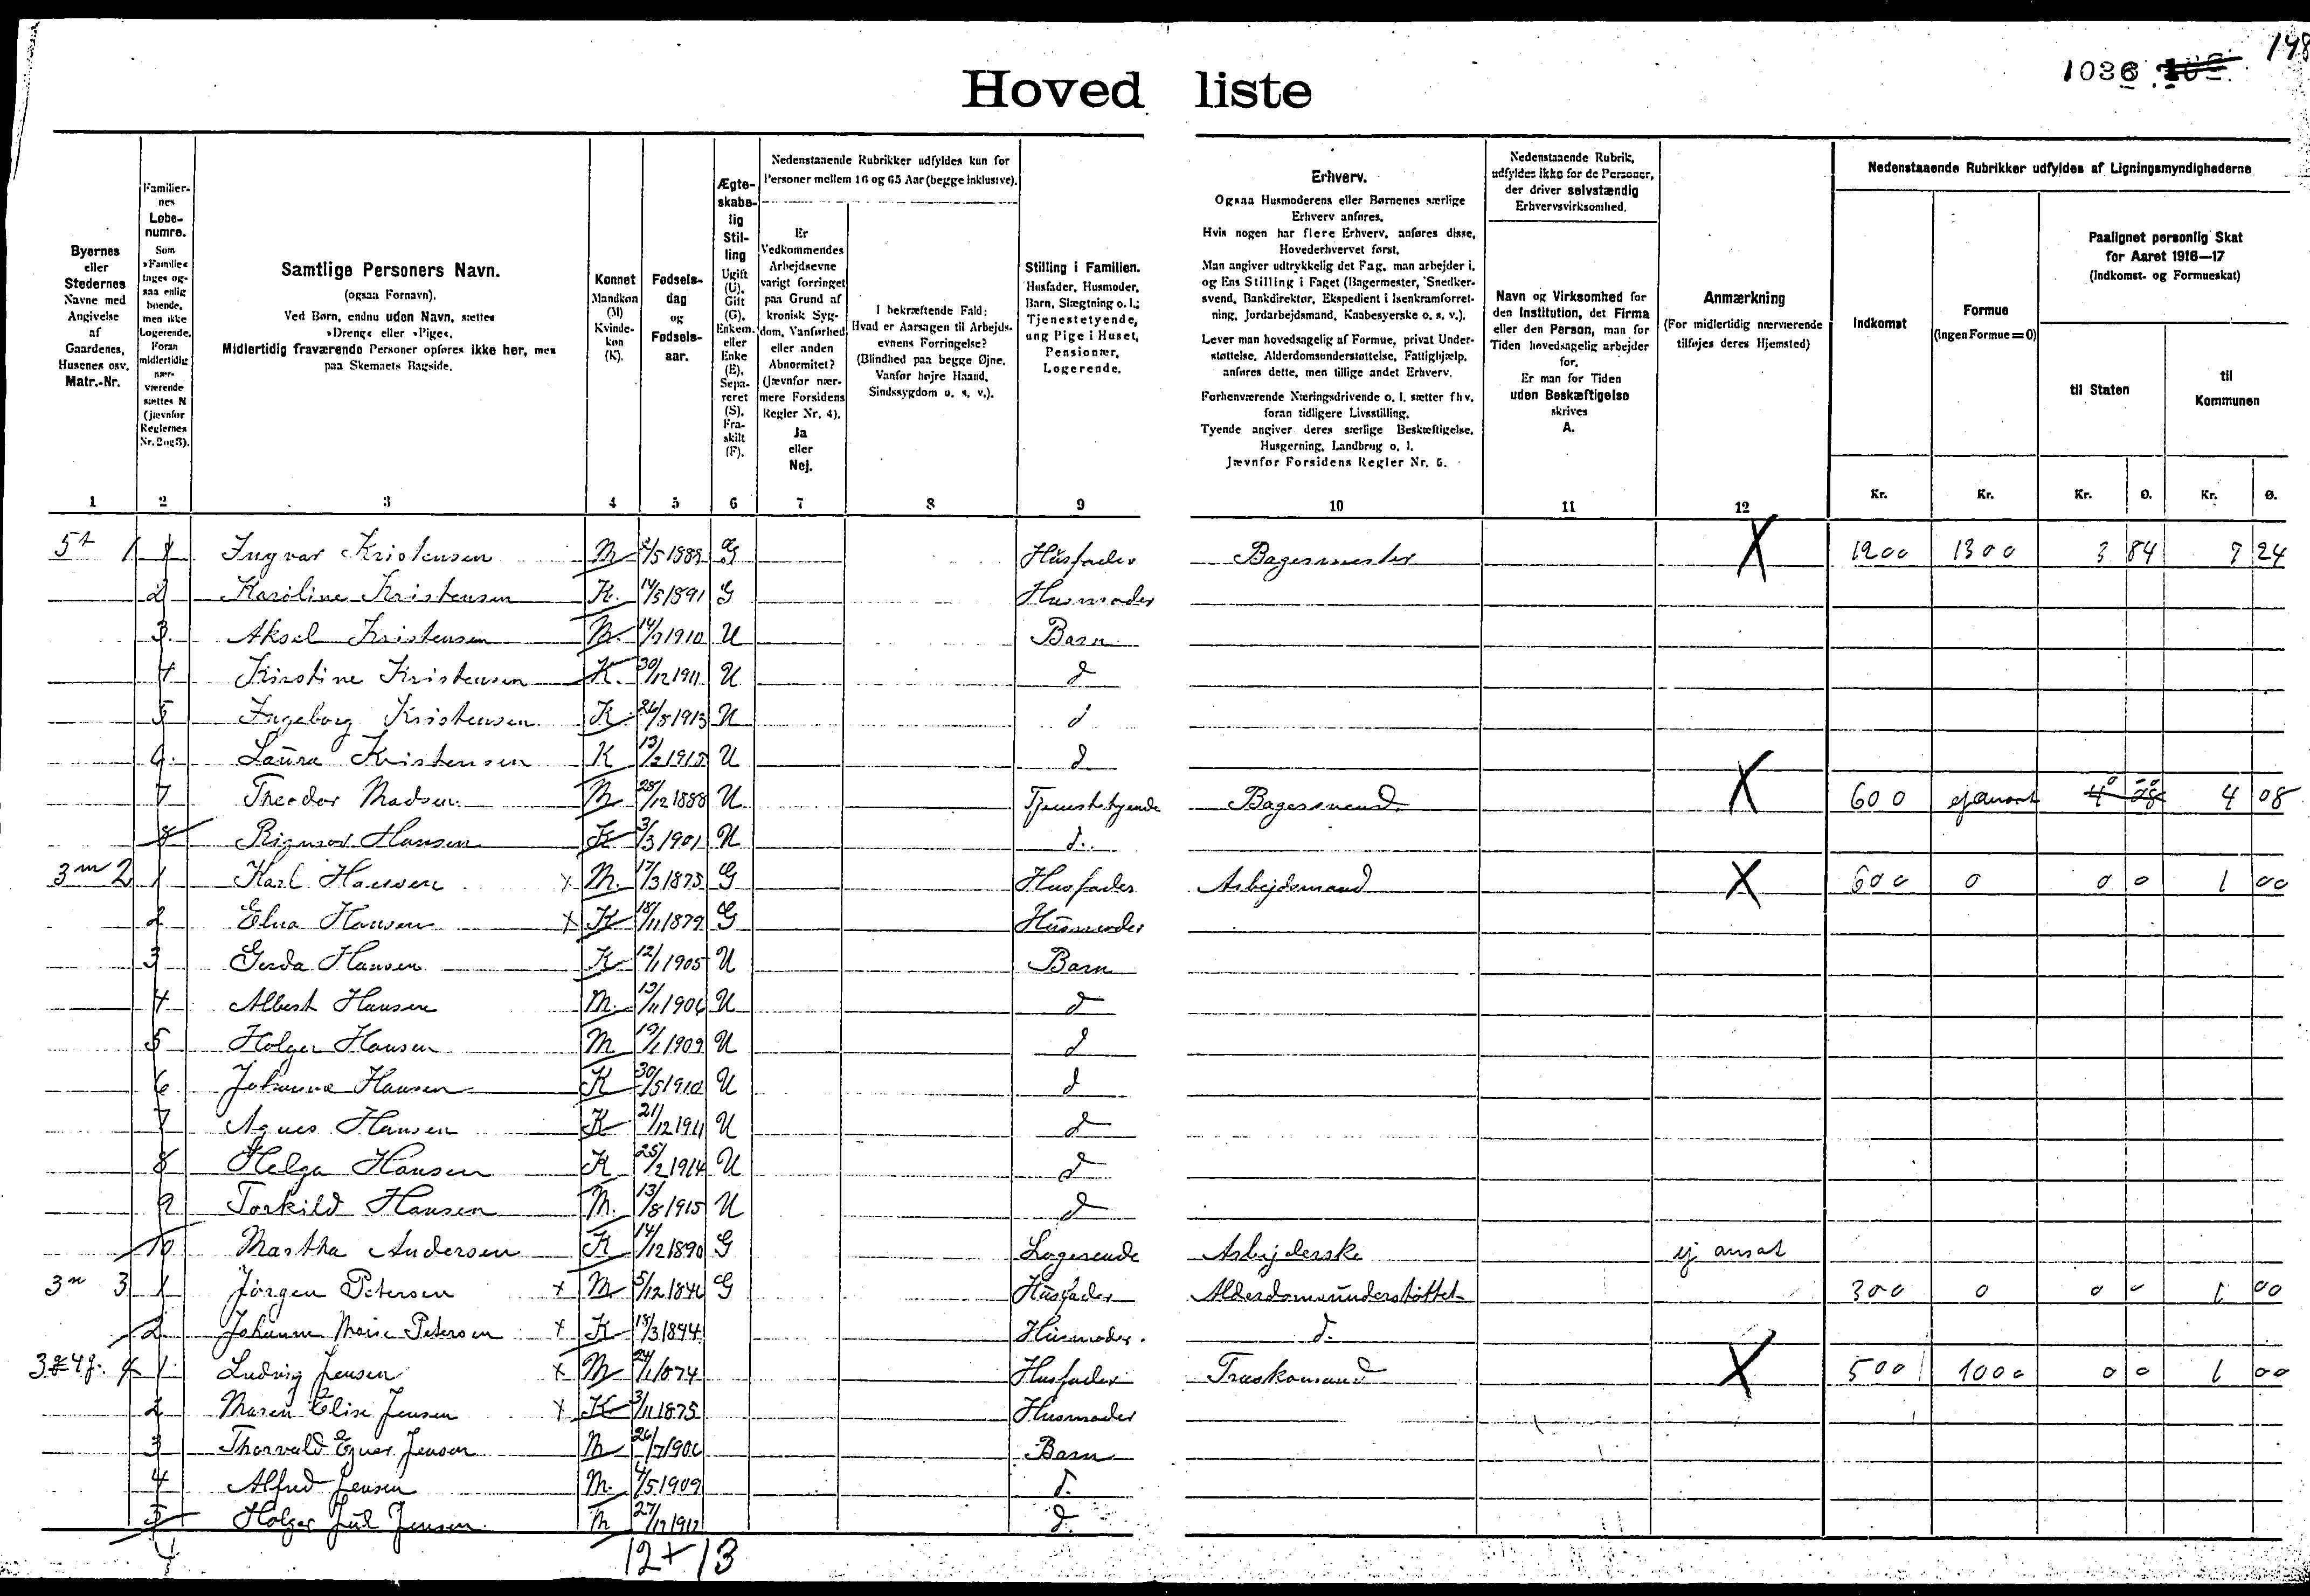 148
1036
Hoved liste
Byernes
eller
Stedernes
Navne med
Angivelse
af
Gaardenes,
Husenes osv.
Matr.-Nr.
Familier-
nes
Løbe-
numre.
Som
»Familie«
tages og-
saa enlig
boende,
men ikke
Logerende.
Foran
midlertidig
nær-
værende
sættes N
(jævnfør
Reglernes
Nr. 2 og 3).
Samtlige Personers Navn.
(ogsaa Fornavn).
Ved Børn, endnu uden Navn, sættes
»Dreng« eller »Pige«.
Midlertidig fraværende Personer opføres ikke her, men
paa Skemaets Bagside.
Kønnet
Mandkøn
(M)
Kvinde-
køn
(K).
Fødsels-
dag
og
Fødsels-
aar.
Ægte-
skabe-
lig
Stil-
ling
Ugift
(U).
Gift
(G).
Enkem.
eller
Enke
(E).
Sepa-
reret
(S).
Fra-
skilt
(F).
Nedenstaaende Rubrikker udfyldes kun for
Personer mellem 16 og 65 Aar (begge inklusive).
Er
Vedkommendes
Arbejdsevne
varigt forringet
paa Grund af
kronisk Syg-
dom, Vanførhed
eller anden
Abnormitet?
(Jævnfør nær-
mere Forsidens
Regler Nr. 4).
Ja
eller
Nej.
I bekræftende Fald:
Hvad er Aarsagen til Arbejds-
evnens Forringelse?
(Blindhed paa begge Øjne,
Vanfør højre Haand,
Sindssygdom o. s. v.).
Stilling i Familien.
Husfader, Husmoder,
Barn, Slægtning o. l.;
Tjenestetyende,
ung Pige i Huset,
Pensionær,
Logerende.
Erhverv.
Ogsaa Husmoderens eller Børnenes særlige
Erhverv anføres.
Hvis nogen har flere Erhverv, anføres disse,
Hovederhvervet først.
Man angiver udtrykkelig det Fag, man arbejder i,
og Ens Stilling i Faget (Bagermester, Snedker-
svend, Bankdirektør, Ekspedient i Isenkramforret-
ning, Jordarbejdsmand, Kaabesyerske o. s. v.).
Lever man hovedsagelig af Formue, privat Under-
støttelse, Alderdomsunderstøttelse, Fattighjælp,
anføres dette, men tillige andet Erhverv.
Forhenværende Næringsdrivende o. l. sætter fhv.
foran tidligere Livsstilling.
Tyende angiver deres særlige Beskæftigelse,
Husgerning, Landbrug o. l.
Jævnfør Forsidens Regler Nr. 6.
Nedenstaaende Rubrik,
udfyldes ikke for de Personer,
der driver selvstændig
Erhvervsvirksomhed.
Navn og Virksomhed for
den Institution, det Firma
eller den Person, man for
Tiden hovedsagelig arbejder
for.
Er man for Tiden
uden Beskæftigelse
skrives
A.
Anmærkning
(For midlertidig nærværende
tilføjes deres Hjemsted)
Nedenstaaende Rubrikker udfyldes af Ligningsmyndighederne
Indkomst
Formue
(ingen Formue = 0)
Paalignet personlig Skat
for Aaret 1916—17
(Indkomst- og Formueskat)
til Staten
til
Kommunen
Kr. Kr. Kr. Ø. Kr. Ø.
1 2 3 4 5 6 7 8 9 10 11 12
1 1 Ingvar Kristensen M G Husfader Bagermester X 1200 1300 3 84 24
2 Karoline Kristensen K. 14/5 1891 G Husmoder
3. Aksel Kristensen M. 1910 U Barn
4 Kirstine Kristensen K. 30/12 1911 U d
5 Ingeborg Kristensen K 26/5 1913 U d
6. Laura Kristensen K 13/2 1915 U d
7 Theodor Madsen M 28/12 1888 U Tjenestetyende Bagersvend X 600 ej ansat 4 08
8 Rigmor Hansen K 1901 U d.
3m 2 1 Karl Hansen x M. 17/3 1875 G Husfader Arbejdsmand X 600 0 0 0 1 00
2 Elna Hansen x K 18/11 1879 G Husmoder
3 Gerda Hansen K 12/1 1905 U Barn
4 Albert Hansen M. 13/11 1906 U d
5 Holger Hansen M 19/1 1909 U d
6 Johanne Hansen K 30/5 1910 U d
7 Agnes Hansen K 21/12 1911 U d
8 Helga Hansen K 25/2 1914 U d
9 Torkild Hansen M. 13/8 1915 U d
10 Martha Andersen K 14/12 1890 G Logerende Arbejderske ej ansat
3n 3 1 Jörgen Petersen x M 5/12 1846 G Husfader Alderdomsunderstöttet 300 0 0 0 1 00
2 Johanne Marie Petersen x K 1844 Husmoder. d.
4 1 Ludvig Jensen x M 24/1 1874 Husfader Træskomand X 500 1000 0 0 1 00
2 Maren Elise Jensen x K 3/11 1875 Husmoder
3 Thorvald Egner Jensen M 26/7 1906 Barn
4 Alfred Jensen M. 4/5 1909 d.
5 Holger Juul Jensen M d.
12 + 13